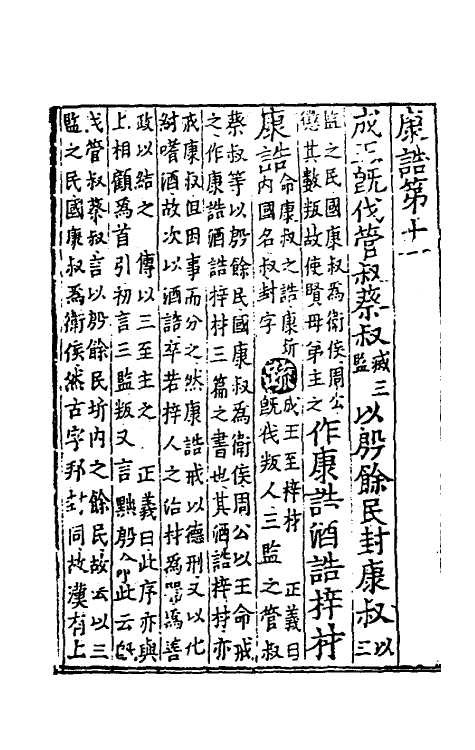 康誥第十一
成王既伐管叔蔡叔滅三監以殷餘民封康叔以三
監之民國康叔爲衛侯周公懲其數叛故使賢母弟主之作康誥酒誥梓材
康誥命康叔之誥康圻內國名叔封字疏成王至梓材 正義曰既伐叛人三監之管叔
蔡叔等以殷餘民國康叔爲衛侯周公以王命戒
之作康誥酒誥梓材三篇之書也其酒誥梓材亦
戒康叔但因事而分之然康誥戒以德刑又以化
紂嗜酒故次以酒誥卒若梓人之治材爲器爲善
政以結之 傳以三至主之 正義曰此序亦與
上相顧爲首引初言三監叛又言黜殷命此云既
伐管叔蔡叔言以殷餘民圻內之餘民故云以三
監之民國康叔爲衛侯然古字邦封同故漢有上